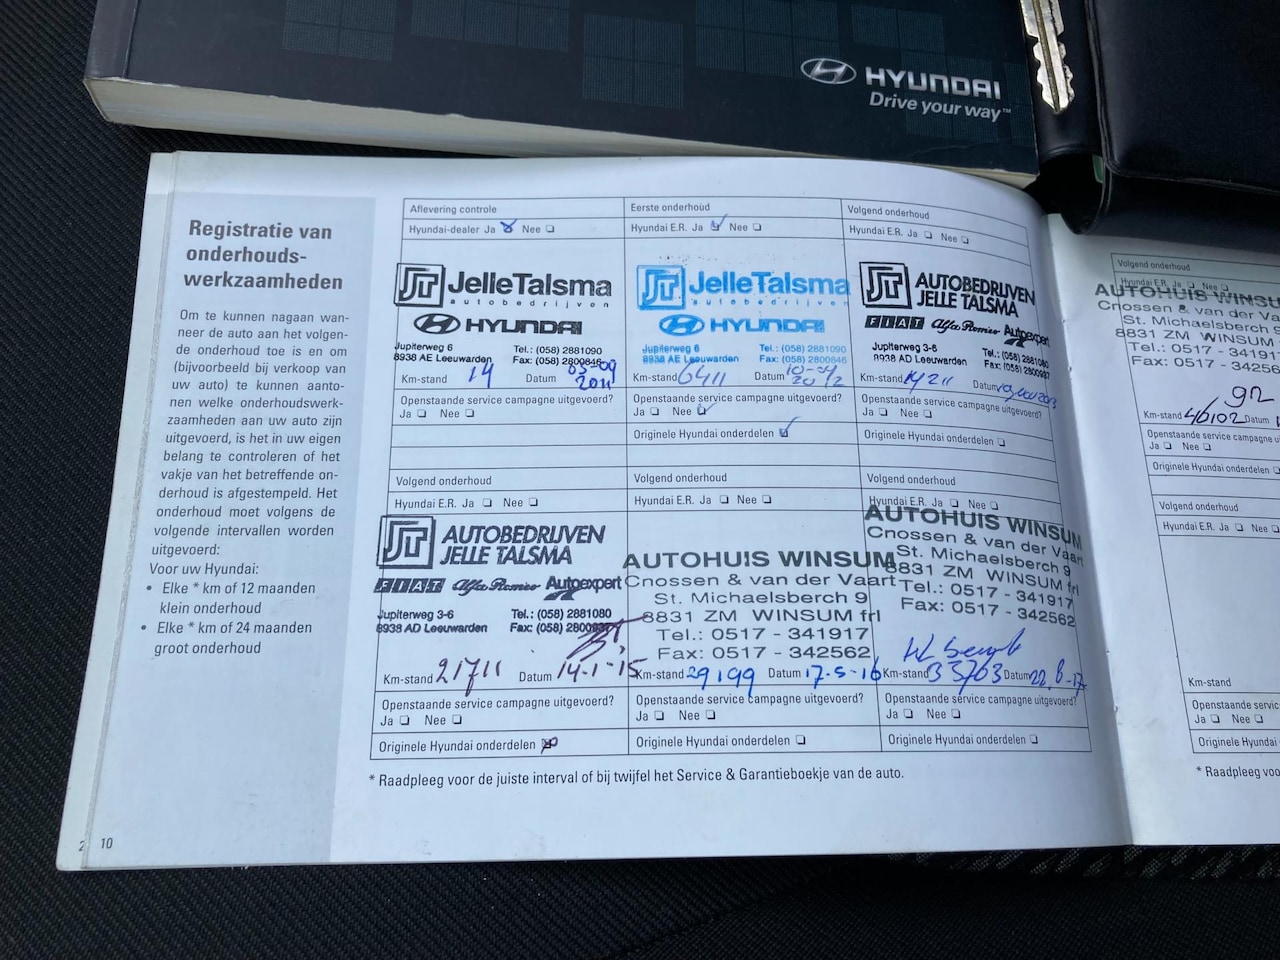 HYUNDAI
Drive your way™
Registratie van
onderhouds-
werkzaamheden
Om te kunnen nagaan wan-
neer de auto aan het volgen-
de onderhoud toe is en om
(bijvoorbeeld bij verkoop van
uw auto) te kunnen aanto-
nen welke onderhoudswerk-
zaamheden aan uw auto zijn
uitgevoerd, is het in uw eigen
belang te controleren of het
vakje van het betreffende on-
derhoud is afgestempeld. Het
onderhoud moet volgens de
volgende intervallen worden
uitgevoerd:
Voor uw Hyundai:
• Elke * km of 12 maanden
klein onderhoud
• Elke * km of 24 maanden
groot onderhoud
10
Aflevering controle
Hyundai-dealer Ja Nee
JT JelleTalsma
autobedrijven
HYUNDAI
Jupiterweg 6
8938 AE Leeuwarden
Tel.: (058) 2881090
Fax: (058) 2800846
Km-stand 14 Datum 05-09
2011
Openstaande service campagne uitgevoerd?
Ja Nee
Eerste onderhoud
Hyundai E.R. Ja Nee
JT JelleTalsma
autobedrijven
HYUNDAI
Jupiterweg 6
8938 AE Leeuwarden
Tel.: (058) 2881090
Fax: (058) 2800846
Km-stand 6411 Datum
2012
Openstaande service campagne uitgevoerd?
Ja Nee
Originele Hyundai onderdelen
Volgend onderhoud
Hyundai E.R. Ja Nee
JT AUTOBEDRIJVEN
JELLE TALSMA
FIAT Alfa Romeo Autoexpert
Jupiterweg 3-6
8938 AD Leeuwarden
Tel.: (058) 2881080
Fax: (058) 2800937
Km-stand 14211 Datum
Openstaande service campagne uitgevoerd?
Ja Nee
Originele Hyundai onderdelen
Volgend onderhoud
Hyundai E.R. Ja Nee
JT AUTOBEDRIJVEN
JELLE TALSMA
FIAT Alfa Romeo Autoexpert
Jupiterweg 3-6
8938 AD Leeuwarden
Tel.: (058) 2881080
Fax: (058) 2800937
Km-stand 21711 Datum 14-1-15
Openstaande service campagne uitgevoerd?
Ja Nee
Originele Hyundai onderdelen
Volgend onderhoud
Hyundai E.R. Ja Nee
AUTOHUIS WINSUM
Cnossen & van der Vaart
St. Michaelsberch 9
8831 ZM WINSUM frl
Tel.: 0517 - 341917
Fax: 0517 - 342562
Km-stand 29199 Datum 17-5-16
Openstaande service campagne uitgevoerd?
Ja Nee
Originele Hyundai onderdelen
Volgend onderhoud
Hyundai E.R. Ja Nee
AUTOHUIS WINSUM
Cnossen & van der Vaart
St. Michaelsberch 9
8831 ZM WINSUM frl
Tel.: 0517 - 341917
Fax: 0517 - 342562
Km-stand 33703 Datum
Openstaande service campagne uitgevoerd?
Ja Nee
Originele Hyundai onderdelen
* Raadpleeg voor de juiste interval of bij twijfel het Service & Garantieboekje van de auto.
Volgend onderhoud
Hyundai E.R. Ja Nee
AUTOHUIS WINSU
Cnossen & van der
St. Michaelsberch 9
8831 ZM WINSUM
Tel.: 0517 - 341917
Fax: 0517 - 34256
Km-stand 46102 Datum
Openstaande service campagne
Ja Nee
Originele Hyundai onderdelen
Volgend onderhoud
Hyundai E.R. Ja Nee
Km-stand
Openstaande servic
Ja Nee
Originele Hyundai
* Raadpleeg voo